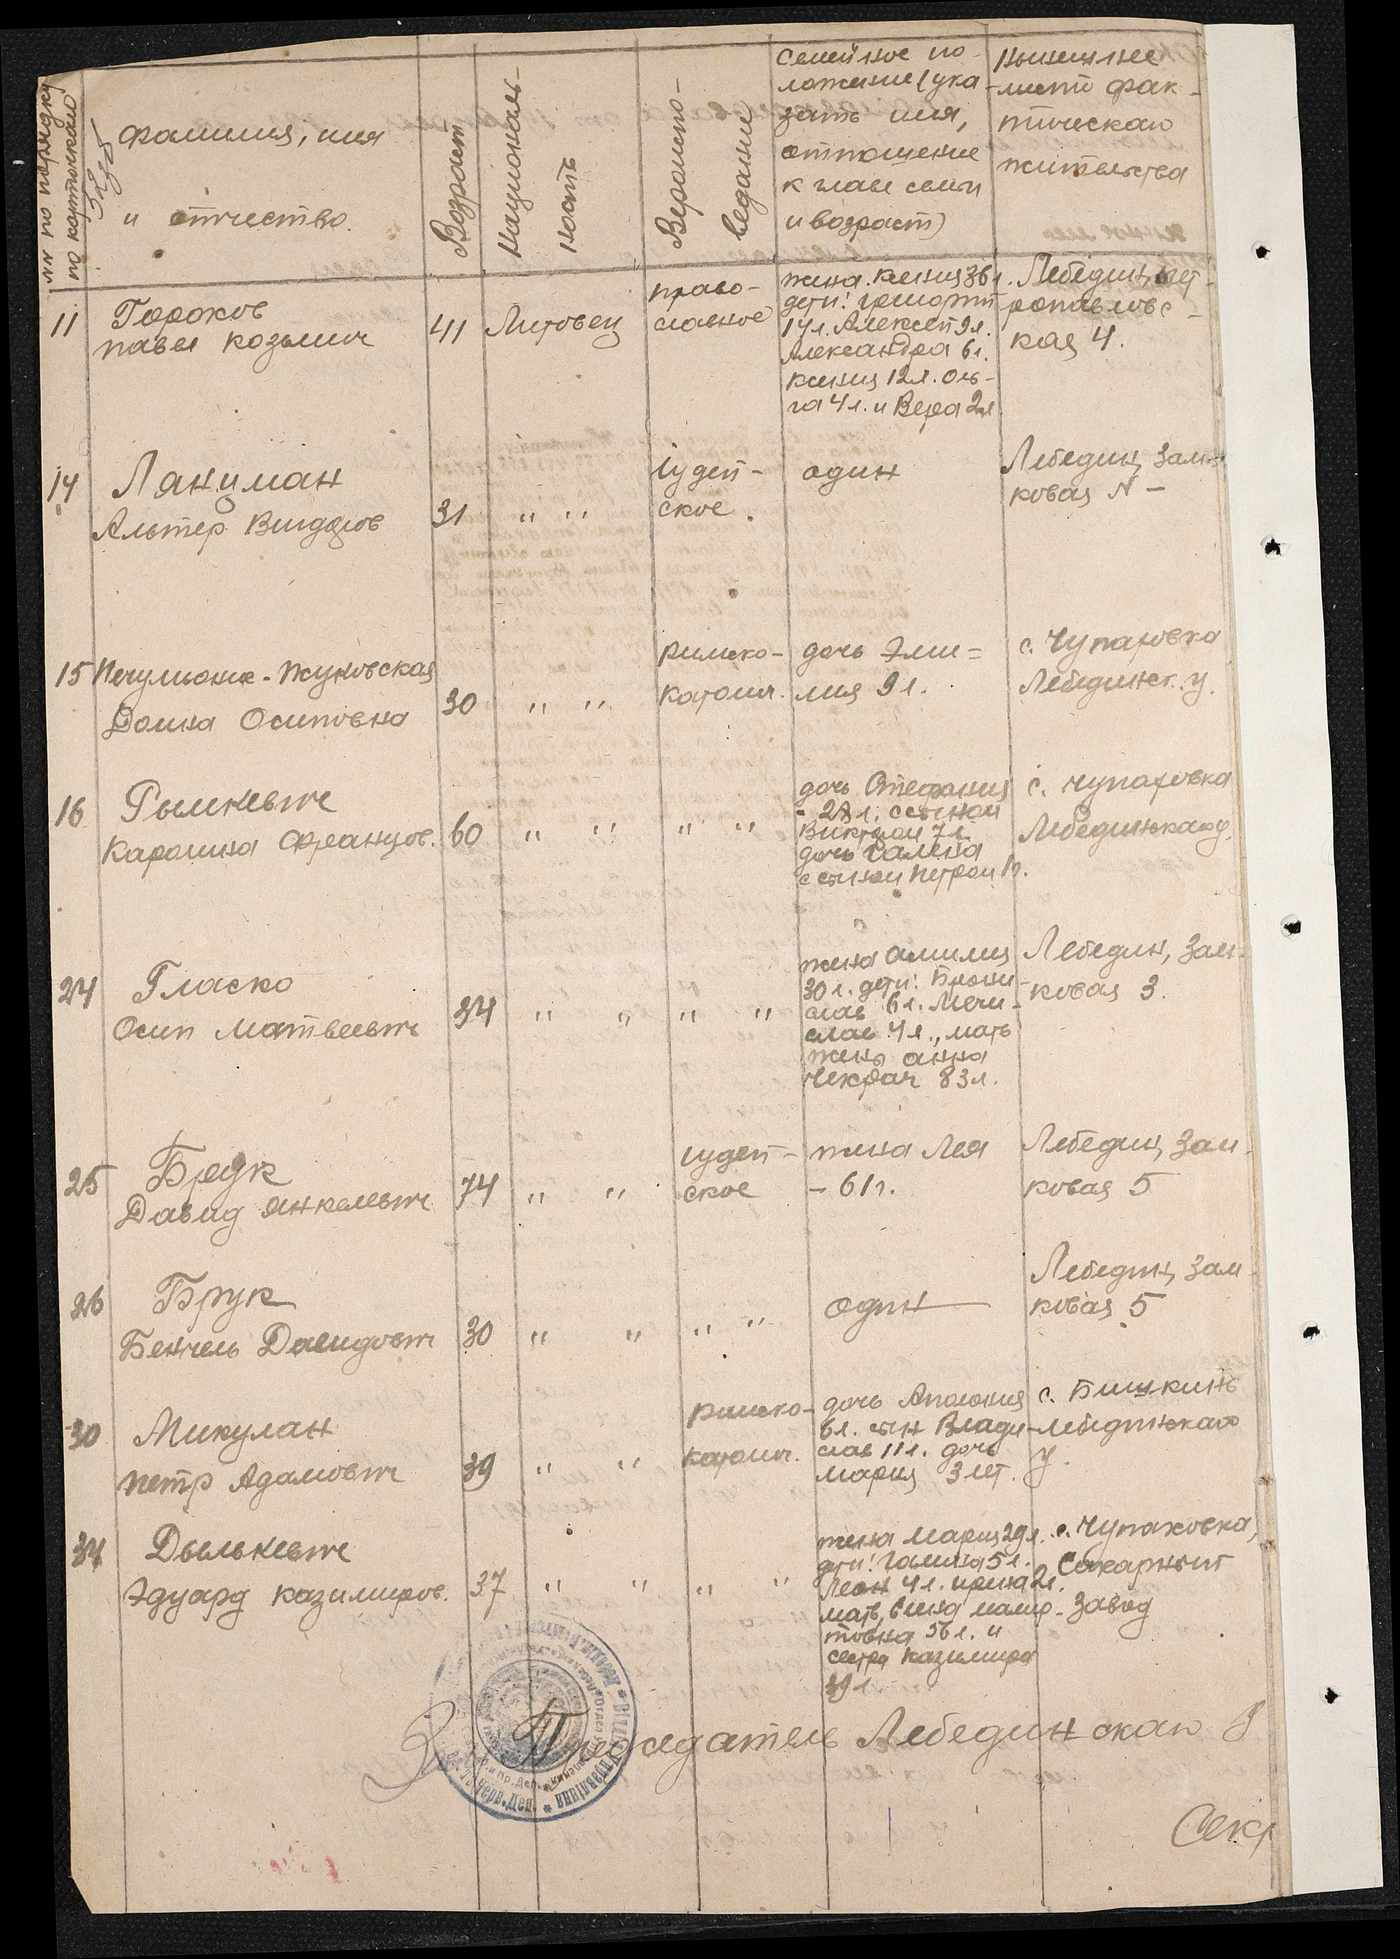 №№ по порядку
по карточкам
фамилия, имя
и отчество.
Возраст
Националь-
ность
Вероиспо-
ведание
Семейное по-
ложение (ука-
зать имя,
отношение
к главе семьи
и возраст)
Нынешнее
место фак-
тическаго
жительства
11
Горохов
Павел Козьмич
41
Литовец
право-
славное
жена Ксения 36 л.
дети: Григорий
14 л. Алексей 9 л.
Александра 6 л.
Ксения 12 л. Оль-
га 4 л. и Вера 2 л.
Лебедин, Пет-
ропавловс-
кая 4.
14
Лянцман
Альтер
31
" "
Іудей-
ское.
один
Лебедин, Зам-
ковая № —
15
Жуковская
Домна Осиповна
30
" "
римско-
католич.
дочь Эми-
лия 9 л.
с. Чупаховка
Лебединск. у.
16
Рымкевич
Каролина Францов.
60
" "
" "
дочь Стефания
- 28 л. с сыном
Виктром 7 л.
дочь Галена
с сыном Петром 1 г.
с. Чупаховка
Лебединскаго у.
24
Гласко
Осип Матвеевич
34
" "
" "
жена Амилия
30 л. дети: Брони-
слав 6 л. Мечи-
слав 4 л., мать
жены Анна
83 л.
Лебедин, Зам-
ковая 3.
25
Брук
Давид Янкелевич
74
" "
іудей-
ское
жена Лея
- 61 г.
Лебедин, Зам-
ковая 5
26
Брук
Бенчель Давидович
30
" "
" "
один
Лебедин, Зам-
ковая 5
30
Микулан
Петр Адамович
39
" "
римско-
католич.
дочь Аполония
6 л. сын Влади-
слав 11 л. дочь
Мария 3 лет.
с. Бишкинь
Лебединскаго
у.
34
Дылькевич
Эдуард Казимиров.
37
" "
" "
жена Мария 29 л.
дети: Галина 5 л.
Леон 4 л. Ирена 2 л.
мать,
56 л. и
сестра Казимира
39 л.
с. Чупаховка,
Сахарный
завод
Председатель Лебединскаго
Секр